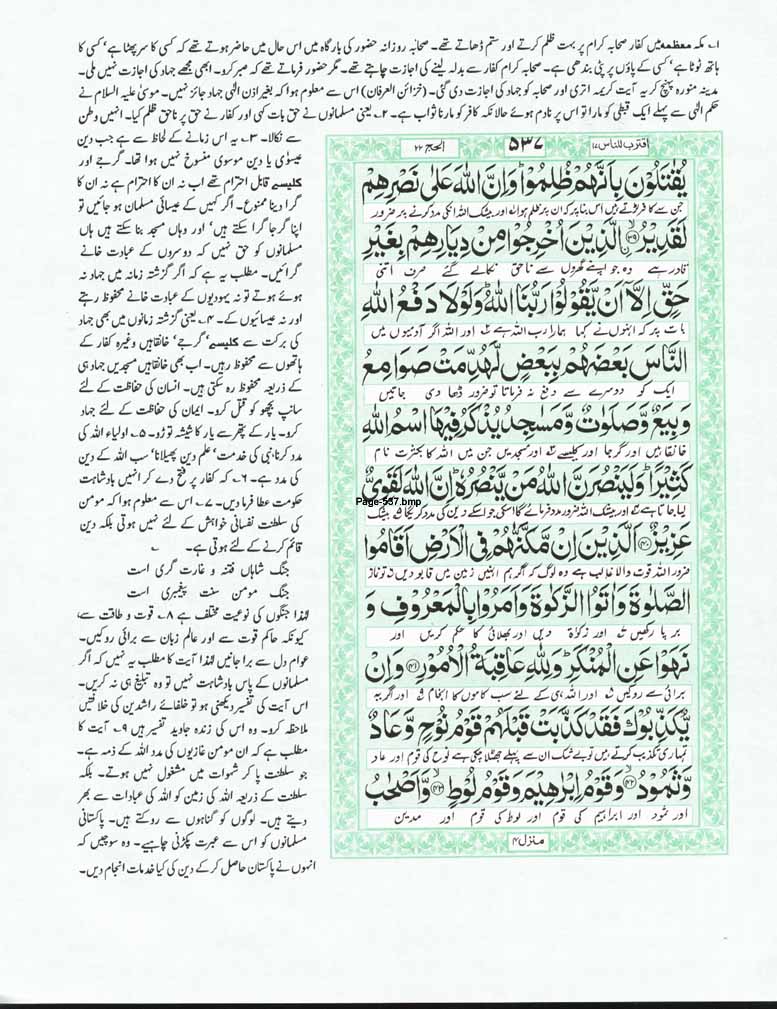 ۱۔ مکہ معظمہ میں کفار صحابہ کرام پر بہت ظلم کرتے اور ستم ڈھاتے تھے۔ صحابہ روزانہ حضور کی بارگاہ میں اس حال میں حاضر ہوتے تھے کہ کسی کا سر پھٹا ہے' کسی کا
ہاتھ ٹوٹا ہے' کسی کے پاؤں پر پٹی بندھی ہے۔ صحابہ کرام کفار سے بدلہ لینے کی اجازت چاہتے تھے۔ مگر حضور فرماتے تھے کہ صبر کرو۔ ابھی مجھے جہاد کی اجازت نہیں ملی۔
مدینہ منورہ پہنچ کر یہ آیت کریمہ اتری اور صحابہ کو جہاد کی اجازت دی گئی۔ (خزائن العرفان) اس سے معلوم ہوا کہ بغیر اذن الٰہی جہاد جائز نہیں۔ موسیٰ علیہ السلام نے
حکم الٰہی سے پہلے ایک قبطی کو مارا تو اس پر نادم ہوئے حالانکہ کافر کو مارنا ثواب ہے۔ ۲۔ یعنی مسلمانوں نے حق بات کہی اور کفار نے حق پر ناحق ظلم کیا۔ انہیں وطن
سے نکالا۔ ۳۔ یہ اس زمانے کے لحاظ سے ہے جب دین
عیسٰوی یا دین موسوی منسوخ نہیں ہوا تھا۔ گرجے اور
کلیسے قابل احترام تھے اب نہ ان کا احترام ہے نہ ان کا
گرا دینا ممنوع۔ اگر کہیں کے عیسائی مسلمان ہو جائیں تو
اپنا گرجا گرا سکتے ہیں' اور وہاں مسجد بنا سکتے ہیں ہاں
مسلمانوں کو حق نہیں کہ دوسروں کے عبادت خانے
گرائیں۔ مطلب یہ ہے کہ اگر گزشتہ زمانہ میں جہاد نہ
ہوئے ہوتے تو نہ یہودیوں کے عبادت خانے محفوظ رہتے
اور نہ عیسائیوں کے۔ ۴۔ یعنی گزشتہ زمانوں میں بھی جہاد
کی برکت سے کلیسے' گرجے' خانقاہیں وغیرہ کفار کے
ہاتھوں سے محفوظ رہیں۔ اب بھی خانقاہیں مسجدیں جہاد ہی
کے ذریعہ محفوظ رہ سکتی ہیں۔ انسان کی حفاظت کے لئے
سانپ بچھو کو قتل کرو۔ ایمان کی حفاظت کے لئے جہاد
کرو۔ یار کے پتھر سے یار کا شیشہ توڑو۔ ۵۔ اولیاء اللہ کی
مدد کرنا' نبی کی خدمت' علم دین پھیلانا' سب اللہ کے دین
کی مدد ہے۔ ۶۔ کہ کفار پر فتح دے کر انہیں بادشاہت
حکومت عطا فرما دیں۔ ۷۔ اس سے معلوم ہوا کہ مومن
کی سلطنت نفسانی خواہش کے لئے نہیں ہوتی بلکہ دین
قائم کرنے کے لئے ہوتی ہے۔
جنگ شاہاں فتنہ و غارت گری است
جنگ مومن سنت پیغمبری است
لہٰذا جنگوں کی نوعیت مختلف ہے ۸۔ قوت و طاقت سے،
کیونکہ حاکم قوت سے اور عالم زبان سے برائی روکیں۔
عوام دل سے برا جانیں لہٰذا آیت کا مطلب یہ نہیں کہ اگر
مسلمانوں کے پاس بادشاہت نہیں تو وہ تبلیغ ہی نہ کریں۔
اس آیت کی تفسیر دیکھنی ہو تو خلفائے راشدین کی خلافتیں
ملاحظہ کرو۔ وہ اس کی زندہ جاوید تفسیر ہیں ۹۔ آیت کا
مطلب ہے کہ ان مومن غازیوں کی مدد اللہ کے ذمہ ہے۔
جو سلطنت پا کر شہوات میں مشغول نہیں ہوتے۔ بلکہ
سلطنت کے ذریعہ اللہ کی زمین کو اللہ کی عبادات سے بھر
دیتے ہیں۔ لوگوں کو گناہوں سے روکتے ہیں۔ پاکستانی
مسلمانوں کو اس سے عبرت پکڑنی چاہیے۔ وہ سوچیں کہ
انہوں نے پاکستان حاصل کر کے دین کی کیا خدمات انجام دیں۔
اقترب للناس۱۷ ۵۳۷ الحج۲۲
يُقٰتَلُوْنَ بِاَنَّهُمْ ظُلِمُوْا ؕ وَاِنَّ اللّٰهَ عَلٰى نَصْرِهِمْ
جن سے کافر لڑتے ہیں اس بنا پر کہ ان پر ظلم ہوا اور بیشک اللہ انکی مدد کرنے پر ضرور
لَقَدِيْرُ ۙ﴿۳۹﴾ الَّذِيْنَ اُخْرِجُوْا مِنْ دِيَارِهِمْ بِغَيْرِ
قادر ہے وہ جو اپنے گھروں سے ناحق نکالے گئے صرف اتنی
حَقٍّ اِلَّاۤ اَنْ يَّقُوْلُوْا رَبُّنَا اللّٰهُ ؕ وَلَوْلَا دَفْعُ اللّٰهِ
بات پر کہ انہوں نے کہا ہمارا رب اللہ ہے اور اللہ اگر آدمیوں میں
النَّاسَ بَعْضَهُمْ بِبَعْضٍ لَّهُدِّمَتْ صَوَامِعُ
ایک کو دوسرے سے دفع نہ فرماتا تو ضرور ڈھا دی جاتیں
وَبِيَعٌ وَّصَلَوٰتٌ وَّمَسٰجِدُ يُذْكَرُ فِيْهَا اسْمُ اللّٰهِ
خانقاہیں اور گرجا اور کلیسے اور مسجدیں جن میں اللہ کا بکثرت نام
كَثِيْرًا ؕ وَلَيَنْصُرَنَّ اللّٰهُ مَنْ يَّنْصُرُهٗ ؕ اِنَّ اللّٰهَ لَقَوِىٌّ
Page-537.bmp
لیا جاتا ہے اور بیشک اللہ ضرور مدد فرمائے گا اسکی جو اسکے دین کی مدد کریگا بیشک
عَزِيْزٌ ﴿۴۰﴾ اَلَّذِيْنَ اِنْ مَّكَّنّٰهُمْ فِى الْاَرْضِ اَقَامُوا
ضرور اللہ قدرت والا غالب ہے وہ لوگ کہ اگر ہم انہیں زمین میں قابو دیں تو نماز
الصَّلٰوةَ وَاٰتَوُا الزَّكٰوةَ وَاَمَرُوْا بِالْمَعْرُوْفِ وَ
برپا رکھیں اور زکوٰۃ دیں اور بھلائی کا حکم کریں اور
نَهَوْا عَنِ الْمُنْكَرِ ؕ وَلِلّٰهِ عَاقِبَةُ الْاُمُوْرِ ﴿۴۱﴾ وَاِنْ
برائی سے روکیں اور اللہ ہی کے لئے سب کاموں کا انجام اور اگر یہ
يُّكَذِّبُوْكَ فَقَدْ كَذَّبَتْ قَبْلَهُمْ قَوْمُ نُوْحٍ وَّعَادٌ
تمہاری تکذیب کرتے ہیں تو بے شک ان سے پہلے جھٹلا چکی ہے نوح کی قوم اور عاد
وَّثَمُوْدُ ۙ﴿۴۲﴾ وَقَوْمُ اِبْرٰهِيْمَ وَقَوْمُ لُوْطٍ ۙ﴿۴۳﴾ وَّاَصْحٰبُ
اور ثمود اور ابراہیم کی قوم اور لوط کی قوم اور مدین
منزل ۴